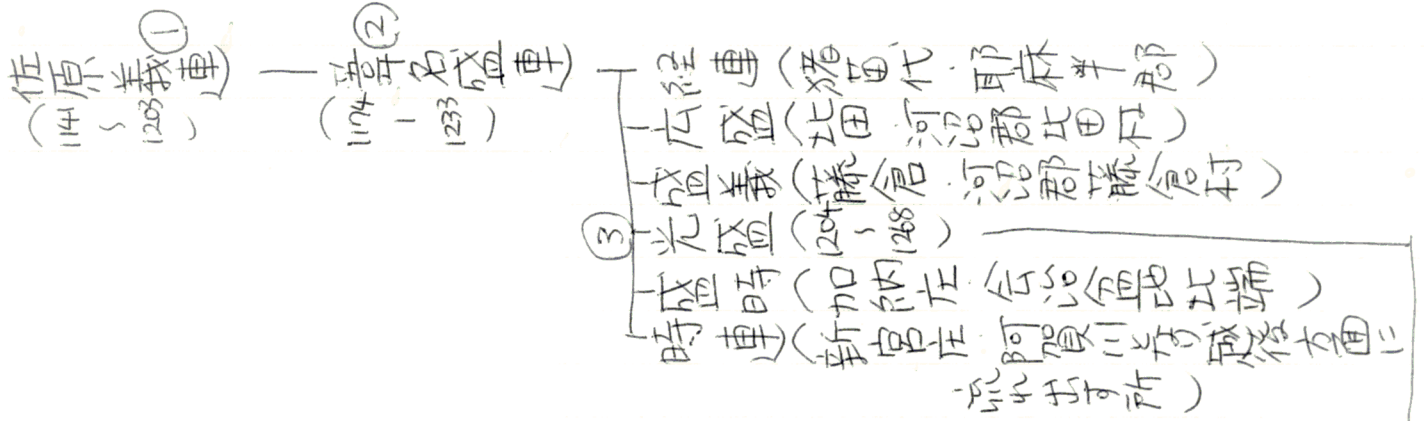 ①
佐原義連
(1141~1203)
②
葦名盛連
(1174~1233)
経連(猪苗代・耶麻半郡)
広盛(北田・河沼郡北田村)
盛義(藤倉・河沼郡藤倉村)
③
光盛(1204~1268)
盛時(加納庄・会津盆地北端)
時連(新宮庄・阿賀川となり越後方面に
流れ出す所)